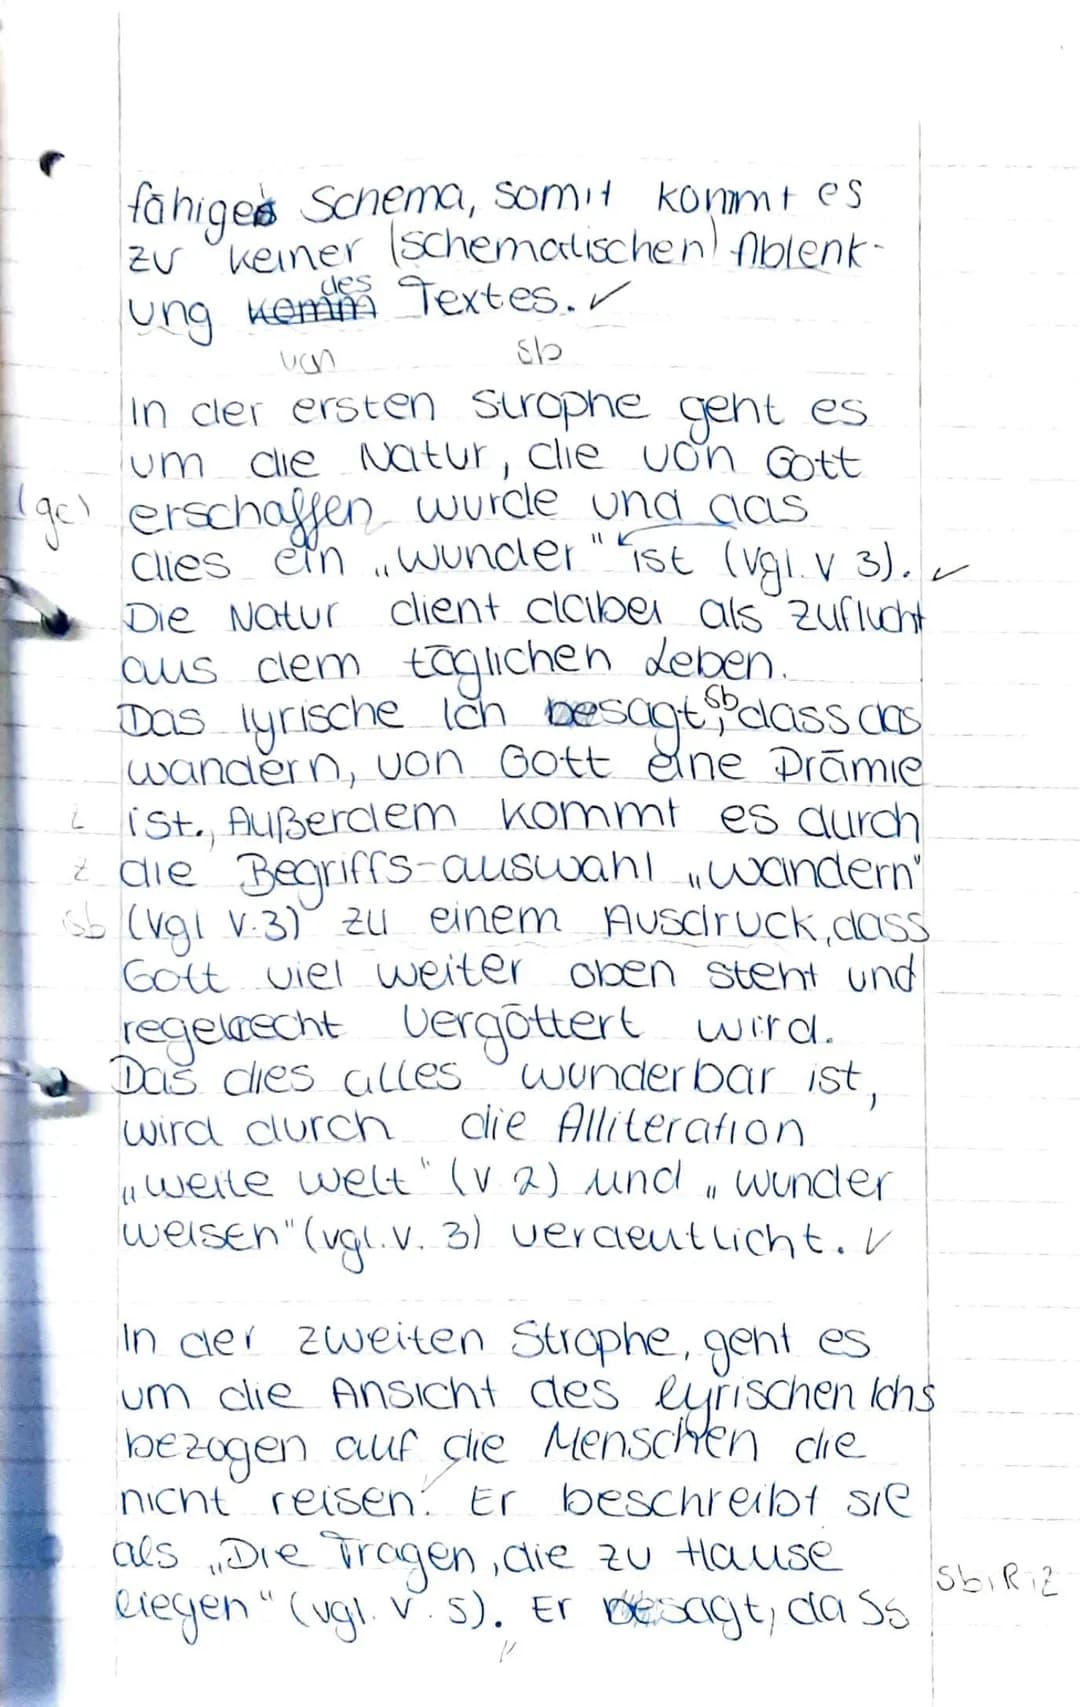 fähiges Schema, somit kommt es
zu keiner (schematischen) Ablenk-
ung des Textes. ✓
von sb
In der ersten Strophe geht es
um die Natur, die von Gott
(ge) erschaffen wurde und das
dies ein „wunder" ist (vgl. v 3). ✓
Die Natur dient dabei als zuflucht
aus dem täglichen Leben.
Das lyrische Ich besagt, sb dass das
wandern, von Gott eine Prämie
ist., Außerdem kommt es durch
z die Begriffs-auswahl „wandern"
sb (vgl v.3) zu einem Ausdruck, dass
Gott viel weiter oben steht und
regelrecht vergöttert wird.
Das dies alles wunderbar ist,
wird durch die Alliteration
„weite welt" (v 2) und „wunder
weisen" (vgl. v. 3) verdeutlicht. ✓
In der zweiten Strophe, geht es
um die Ansicht des lyrischen Ichs
bezogen auf die Menschen die
nicht reisen. Er beschreibt sie
als „Die Tragen, die zu Hause
liegen" (vgl. v. 5). Er besagt, dass
Sb, R, Z